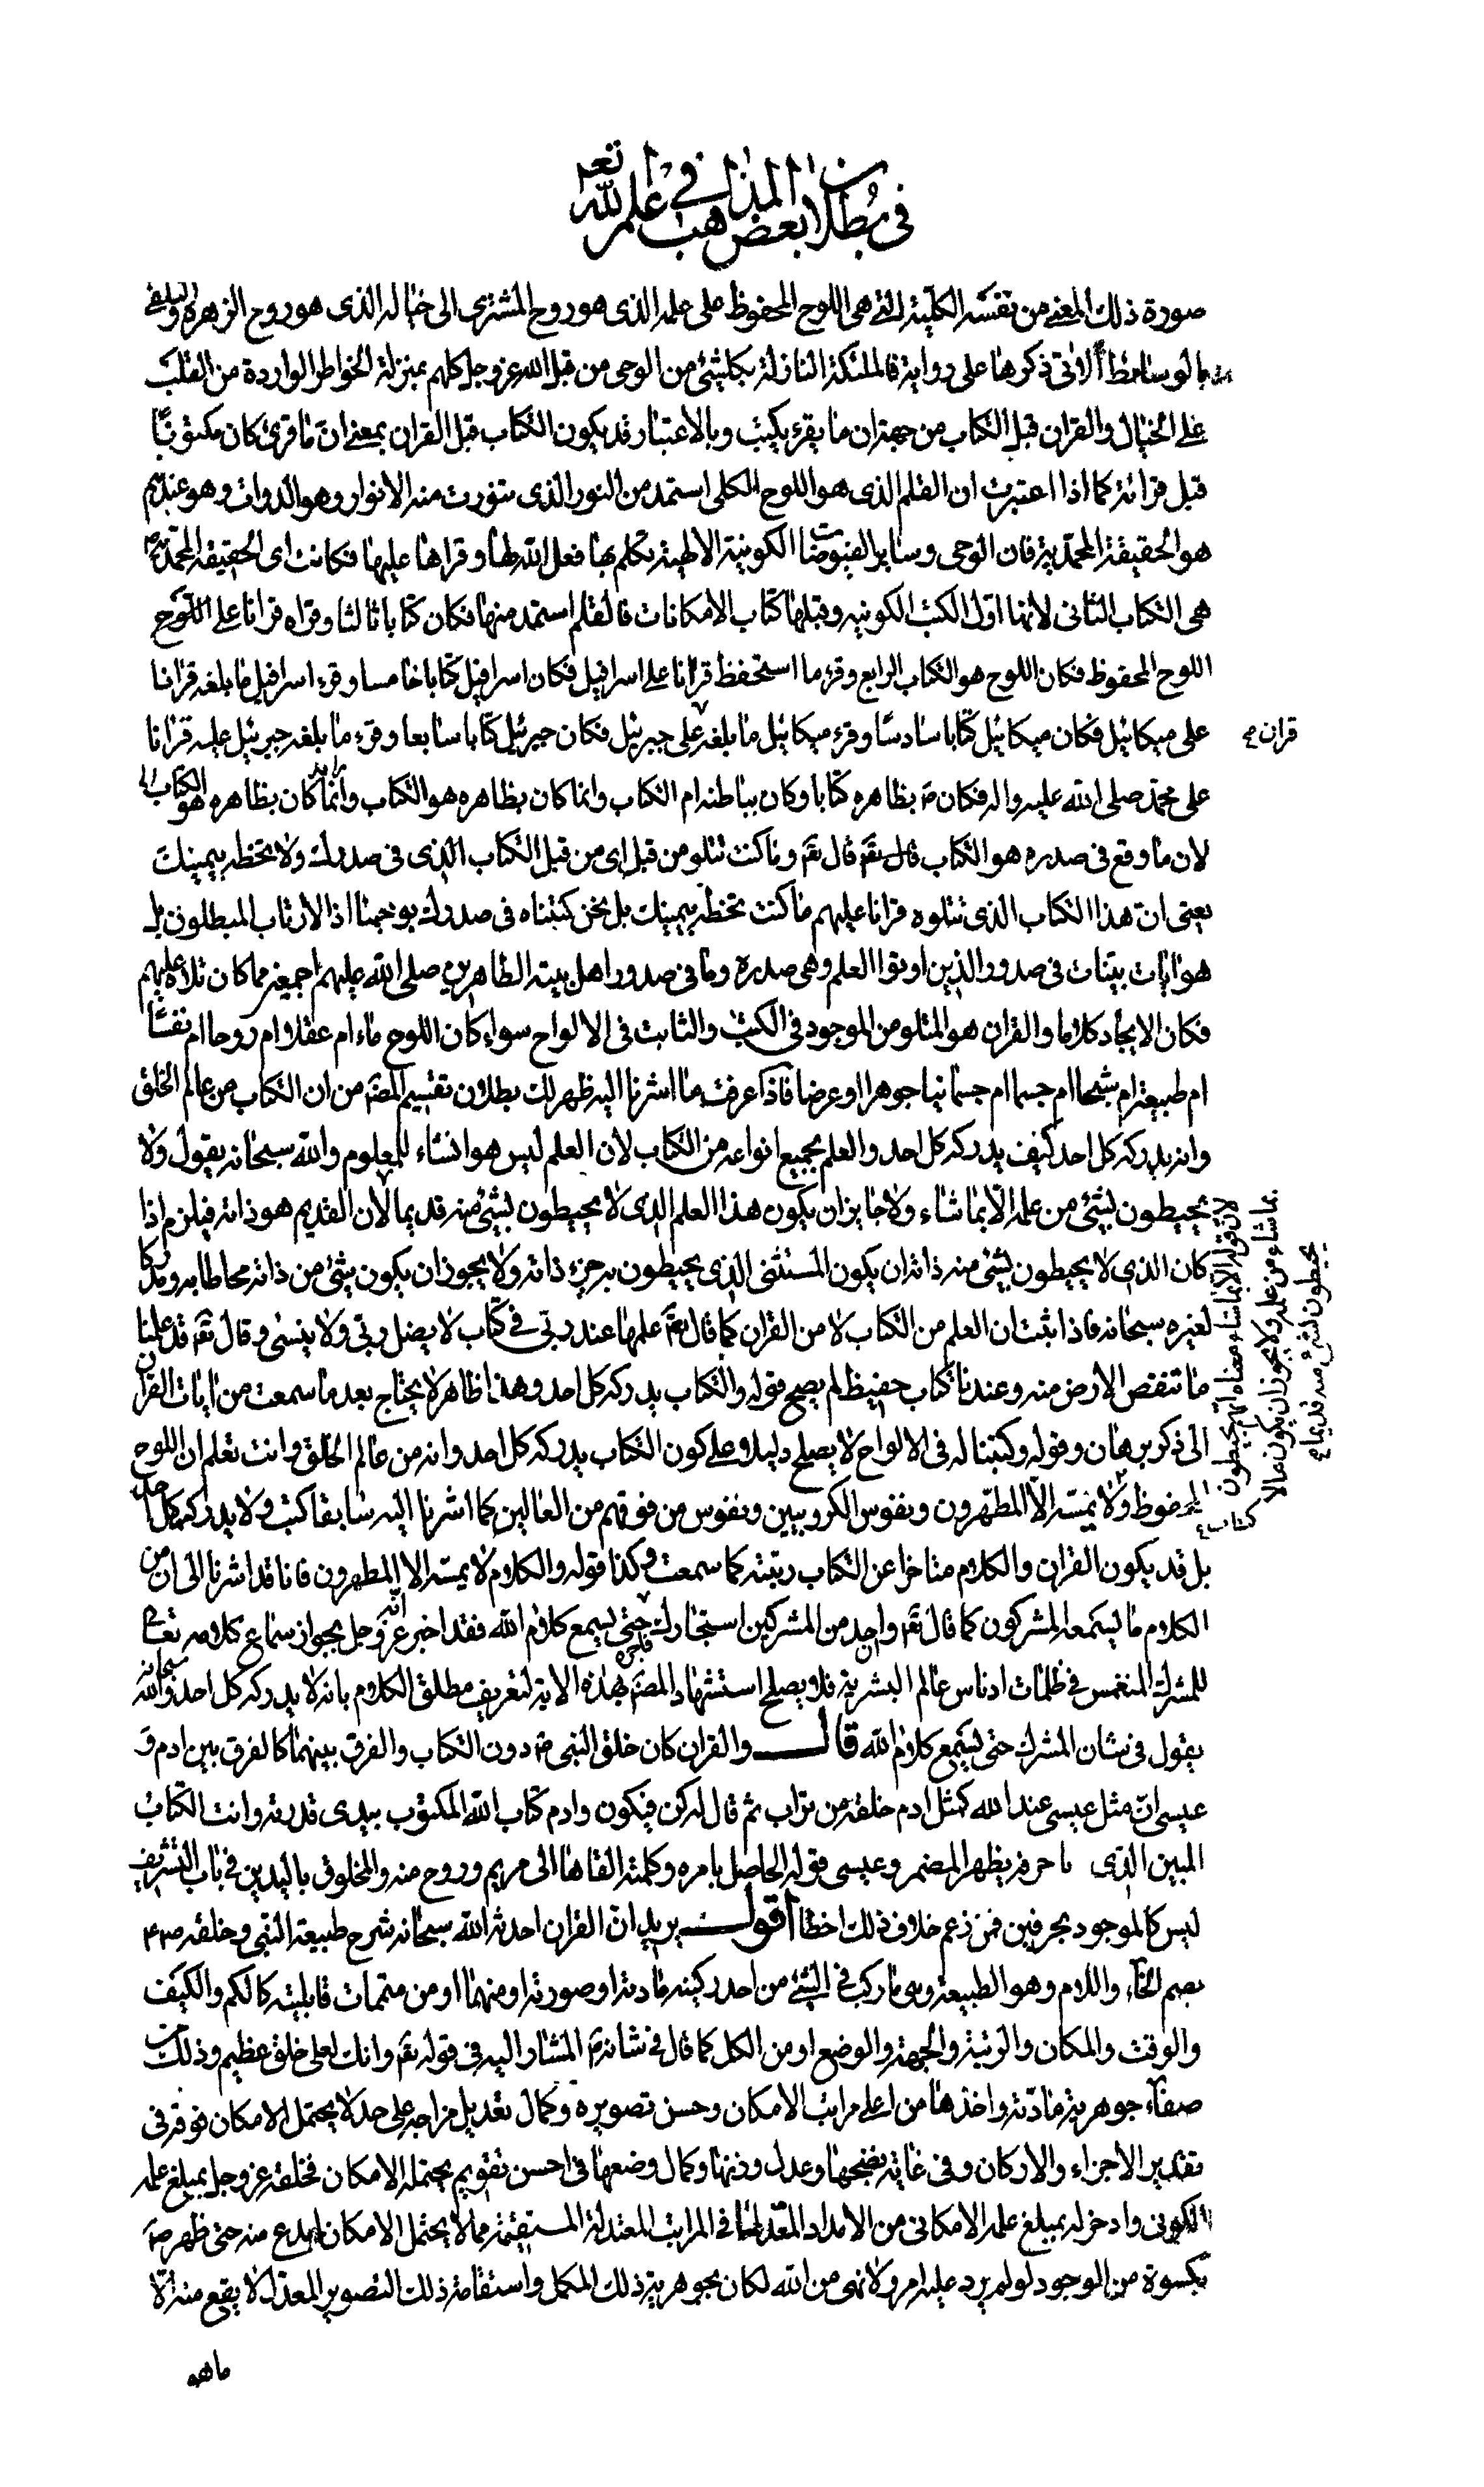 في بطلان بعض المذاهب في علم الله تعم
صورة ذلك المعنى من نفسه الكلية التي هي اللوح المحفوظ على علمه الذى هو روح المشترى الى خياله الذى هو روح الزهرة والتلقى
بالوسايط الاتى ذكرها على رواية فالملئكة النازلة بكلشئ من الوحى من قبل الله عز وجل كلهم بمنزلة الخواطر الواردة من القلب
على الخيال والقران قبل الكتاب من جهة ان ما يقرء يكتب وبالاعتبار قد يكون الكتاب قبل القران بمعنى ان ما قرئ كان مكتوبا
قبل قرائته كما اذا اعتبرت ان القلم الذى هو اللوح الكلى استمد من النور الذى تنورت منه الانوار وهو الدوات وهو عندهم
هو الحقيقة المحمدية فان الوحى وساير الفيوضات الكونية الالهية تكلم بها فعل الله لها وقراها عليها فكانت اى الحقيقة المحمدية
هى الكتاب الثانى لانها اول الكتب الكونيه وقبلها كتاب الامكانات فالقلم استمد منها فكان كتابا ثالثا وقراه قرانا على اللوح
اللوح المحفوظ فكان اللوح هو الكتاب الرابع وقرء ما استحفظ قرانا على اسرافيل فكان اسرافيل كتابا خامسا وقرء اسرافيل ما بلغه قرانا
على ميكائيل فكان ميكائيل كتابا سادسا وقرء ميكائيل ما بلغه على جبرئيل فكان جبرئيل كتابا سابعا وقرء ما بلغه جبرئيل عليه قرانا
قران
على محمد صلى الله عليه واله فكان ص بظاهره كتابا وكان بباطنه ام الكتاب وانما كان بظاهره هو الكتاب وانما كان بظاهره هو الكتاب
لان ما وقع في صدره هو الكتاب قال تع قال تع وما كنت تتلو من قبل اى من قبل الكتاب الذى في صدرك ولا تخطه بيمينك
يعنى ان هذا الكتاب الذى تتلوه قرانا عليهم ما كنت تخطه بيمينك بل نحن كتبناه في صدرك بوحينا اذا لارتاب المبطلون بل
هو ايات بينات في صدور الذين اوتوا العلم وهى صدره وما في صدور اهل بيته الطاهرين صلى الله عليهم اجمعين مما كان تلاه عليهم
فكان الايجاد كلاما والقران هو المتلو من الموجود في الكتب والثابت في الالواح سواء كان اللوح ماء ام عقلا ام روحا ام نفسا
ام طبيعة ام شبحا ام جسما ام جسمانيا جوهرا او عرضا فاذا عرفت ما اشرنا اليه ظهر لك بطلان تقسيم المص من ان الكتاب من عالم الخلق
وانه يدركه كل احد كيف يدركه كل احد والعلم بجميع انواعه من الكتاب لان العلم ليس هو انشاء للمعلوم والله سبحانه يقول ولا
يحيطون بشئ من علمه الا بما شاء ولا جايز ان يكون هذا العلم الذى لا يحيطون بشئ منه قديما لان القديم هو ذاته فيلزم اذا
كان الذى لا يحيطون بشئ منه ذاته ان يكون المستثنى الذى يحيطون به جزء ذاته ولا يجوز ان يكون شئ من ذاته محاطا به ومدركا
لغيره سبحانه فاذا ثبت ان العلم من الكتاب لا من القران كما قال تع علمها عند ربى في كتاب لا يضل ربى ولا ينسى وقال تع قد علمنا
ما تنقص الارض منه وعندنا كتاب حفيظ لم يصح قوله والكتاب يدركه كل احد وهذا ظاهر لا يحتاج بعد ما سمعت من ايات القران
الى ذكر برهان وقوله وكتبنا له في الالواح لا يصلح دليلا على كون الكتاب يدركه كل احد وانه من عالم الخلق وانت تعلم ان اللوح
المحفوظ ولا يمسه الا المطهرون ونفوس الكروبيين ونفوس من فوقهم من العالين كما اشرنا اليه سابقا كتب ولا يدركه كل احد
لان قوله الا بما شاء معناه انهم يحيطون
بما شاء من علمه ولا يجوز ان يكون ما لا
يحيطون بشئ منه قديما
كتاب
بل قد يكون القران والكلام متاخرا عن الكتاب رتبة كما سمعت وكذا قوله والكلام لا يمسه الا المطهرون فانا قد اشرنا الى ان من
الكلام ما يسمعه المشركون كما قال تع وان احد من المشركين استجارك فاجره حتى يسمع كلام الله فقد اخبر عز وجل بجواز سماع كلامه تعالى
للمشرك المنغمس في ظلمات ادناس عالم البشرية فلا يصلح استشهاد المص بهذه الاية لتعريف مطلق الكلام بانه لا يدركه كل احد والله سبحانه
يقول في شان المشرك حتى يسمع كلام الله قال والقران كان خلق النبى ص دون الكتاب والفرق بينهما كالفرق بين ادم و
عيسى ان مثل عيسى عند الله كمثل ادم خلقه من تراب ثم قال له كن فيكون وادم كتاب الله المكتوب بيدى قدرته وانت الكتاب
المبين الذى باحرفه يظهر المضمر وعيسى قوله الحاصل بامره وكلمته القاها الى مريم وروح منه والمخلوق باليدين في باب التشريف
ليس كالموجود بحرفين فمن زعم خلاف ذلك اخطا اقول يريد ان القران احدثه الله سبحانه شرح طبيعة النبى وخلقه ص
بضم الخاء واللام وهو الطبيعة وهى ما ركب في الشئ من احد ركنيه مادته او صورته او منهما او من متممات قابليته كالكم والكيف
والوقت والمكان والرتبة والجهة والوضع او من الكل كما قال في شانه ص المشار اليه في قوله تع وانك لعلى خلق عظيم وذلك من
صفاء جوهرية مادته واخذها من اعلى مراتب الامكان وحسن تصويره وكمال تعديل مزاجه على حد لا يحتمل الامكان فوقه في
تقدير الاجزاء والاركان وفي غاية نضجها وعدل وزنها وكمال وضعها في احسن تقويم يحتمله الامكان فخلقه عز وجل بمبلغ علمه
الكونى وادخر له بمبلغ علمه الامكانى من الامداد المعتدلة في المراتب المعتدلة المستقيمة مما لا يحتمل الامكان ابدع منه حتى ظهر ص
بكسوة من الوجود لو لم يرد عليه امر ولا نهى من الله لكان بجوهرية ذلك المكمل واستقامة ذلك التصوير المعدل لا يقع منه الا
ما هو